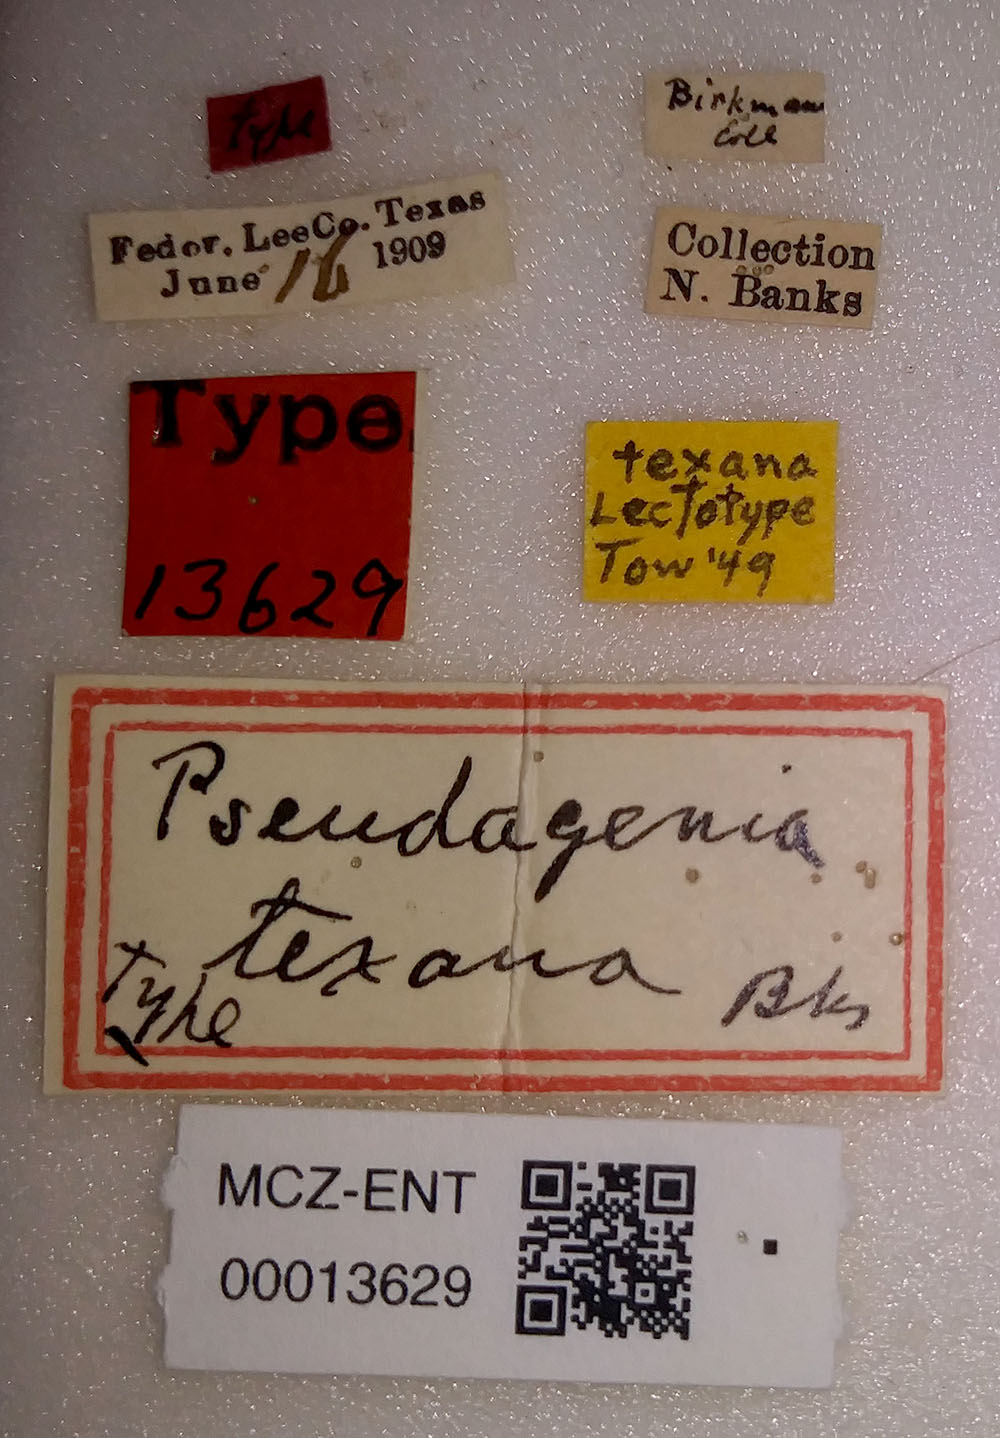 type
Birkman
Coll
Fedor. Lee Co. Texas
June 16 1909
Collection
N. Banks
Type
13629
texana
Lectotype
Tow '49
Pseudagenia
texana
Type
Bks
MCZ-ENT
00013629